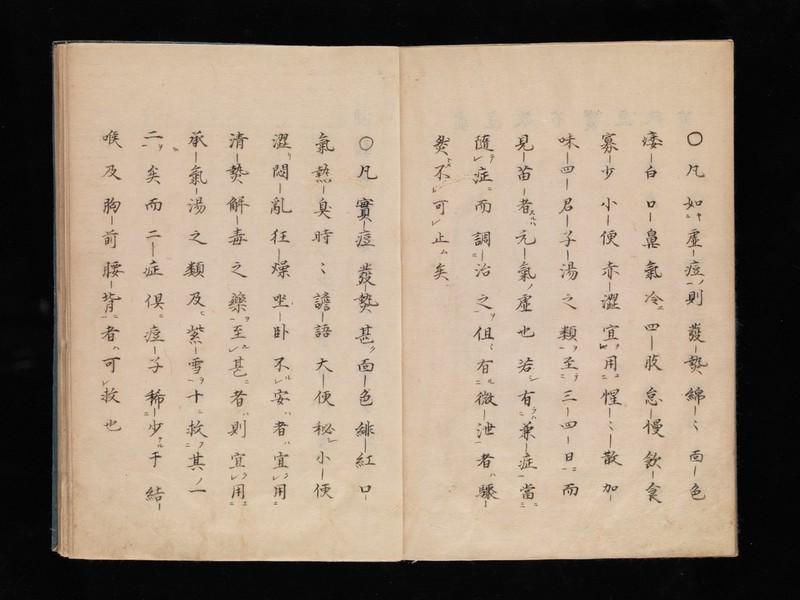 〇凡如虛痘則發㷟綿〻面色
痿白口鼻氣冷四肢怠慢飲食
寡少小便赤澀宜用惺〻散加
味四君子湯之類至三四日而
見苗者元氣虛也若有兼症當
隨症而調治之但有微泄者驟
然不可止矣
〇凡實痘發㷟甚面色緋紅口
氣熱臭時〻譫語大便秘小便
澀悶亂狂燥坐卧不安者宜用
清㷟解毒之藥至甚者則宜用
承氣湯之類及紫雪十救其一
二矣而二症俱痘子稀少于結
喉及胸前腰背者可救也